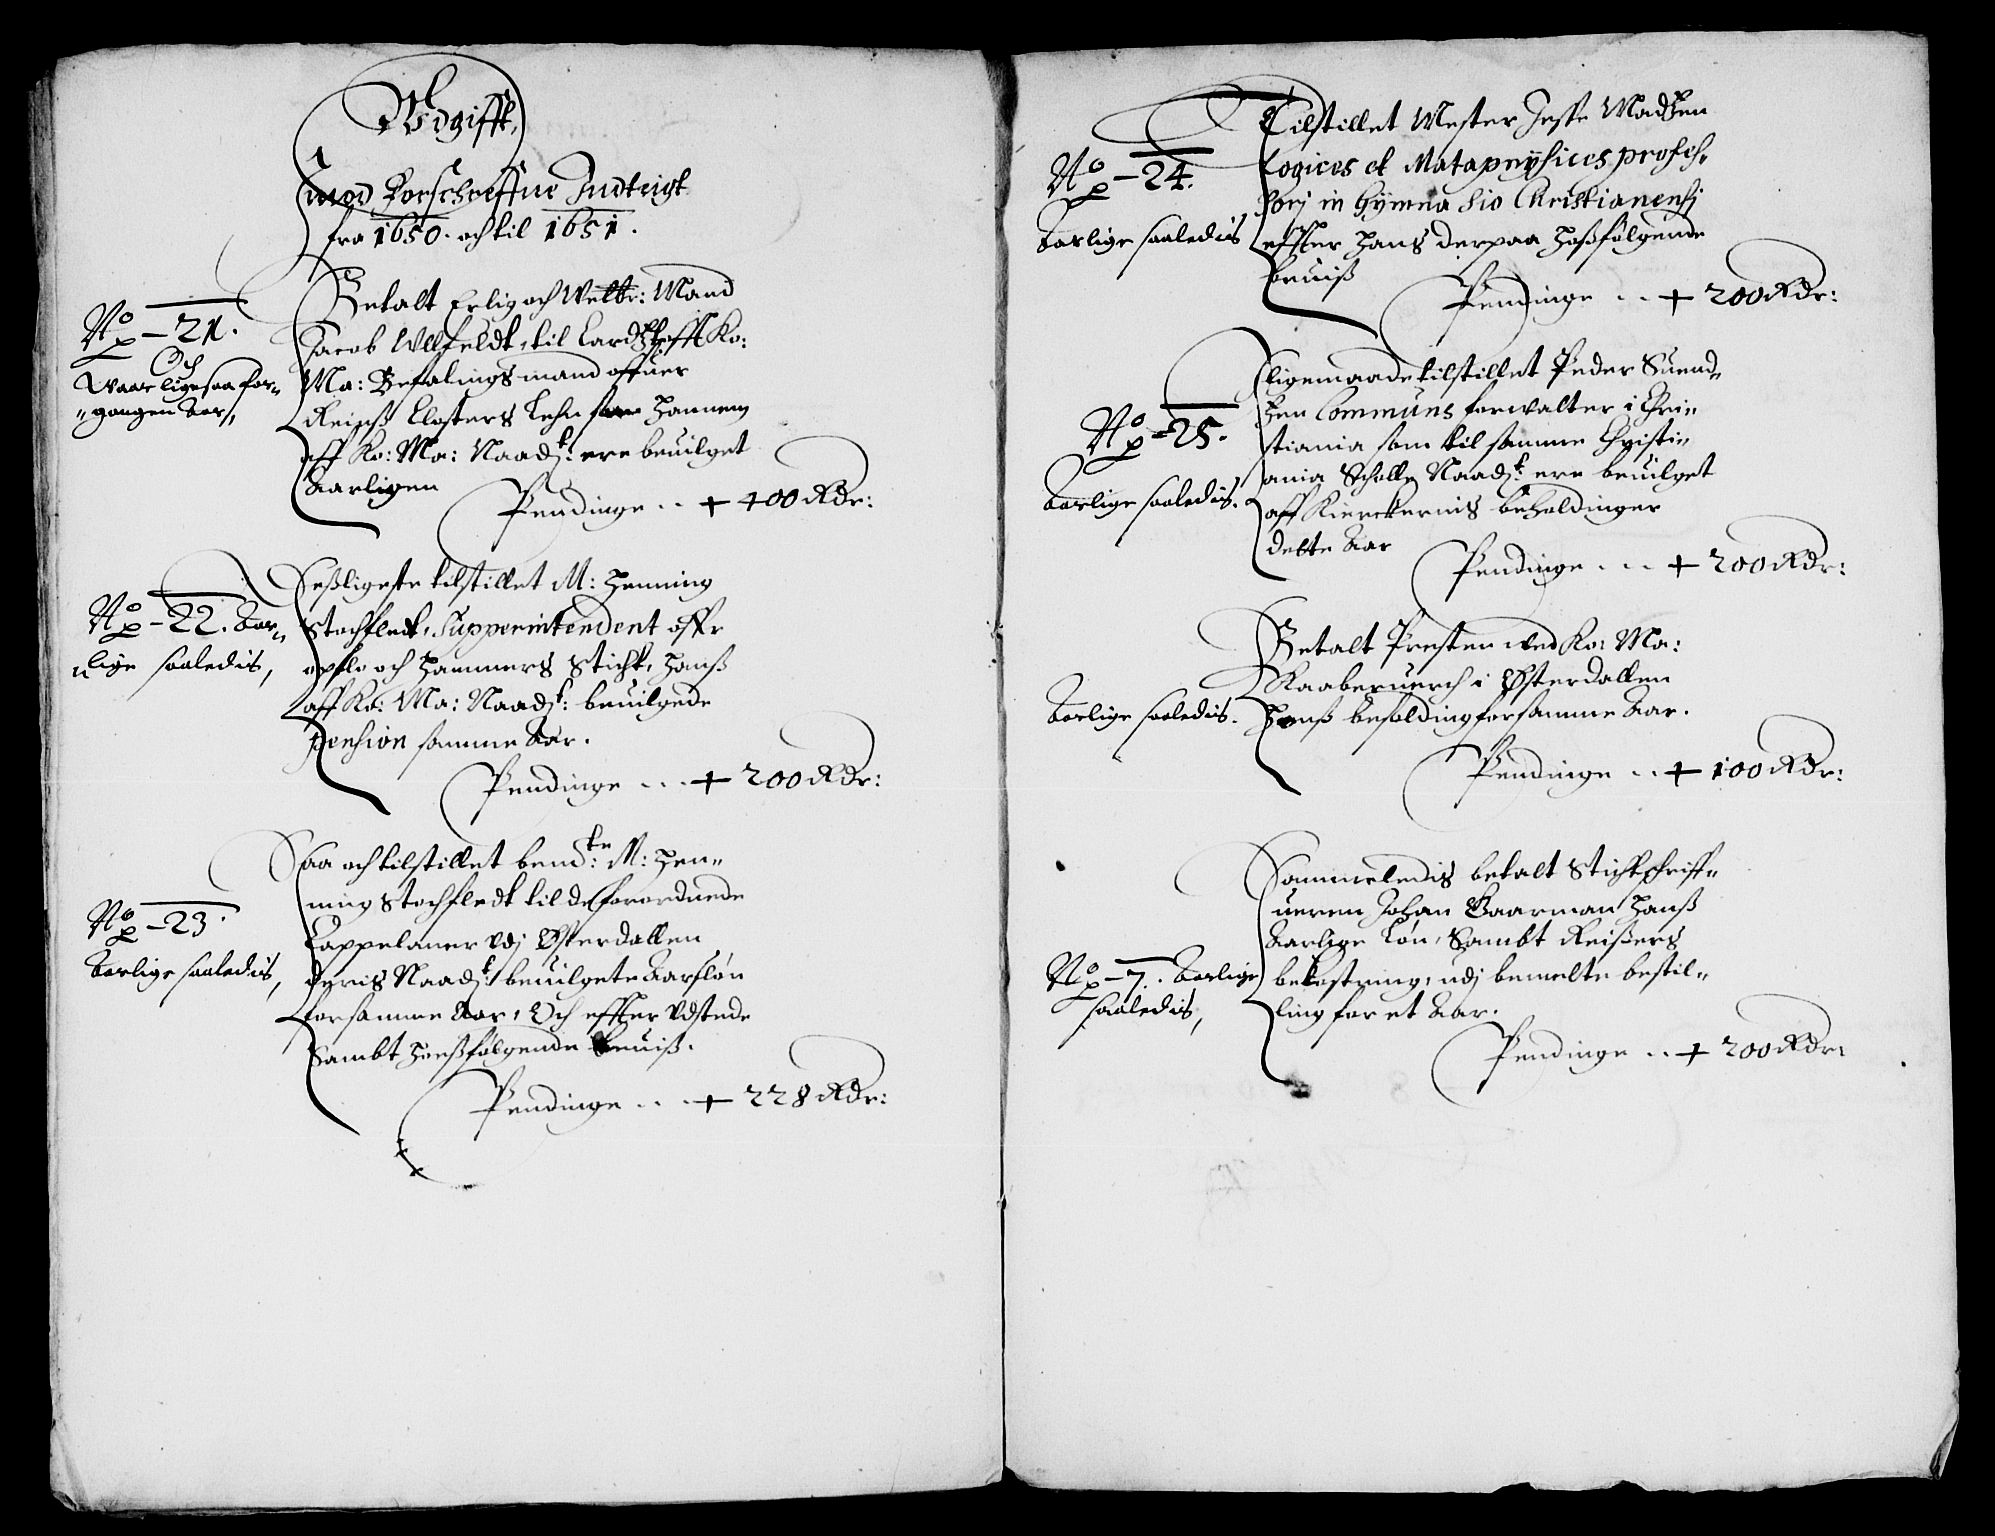 Wdgifft,
imod Forschreffne Indtegt
fra 1650. och til 1651.
No 21.
Och
Waar ligesaa for-
gangen Aar,
Betalt Erlig och Welbr: Mand
Jacob Ullfeldt, til Ko:
Ma: Befalings mand offuer
Reinß Closters Lehn som hannem
aff Ko: Ma: Naadst: ere beuilget
Aarligen
Pendinge .. + 400 Rdr:
No 22. Aar-
lige saaledis,
Seßligeste tilstillet M: Henning
Stochfledt, Supperintendent offr
opslo och Hammers Sticht, Hanß
aff Ko: Ma: Naadst: beuilgede
pension samme Aar.
Pendinge ... + 200 Rdr:
No 23.
Aarlige saaledis,
Saa och tilstillet bemdte: M: Hen-
ning Stochfledt til de forordnede
Cappelaner udj Østerdallen
deris Naadst: beuilgete Aarsløn
for samme Aar, Och effter Udstede
Sambt Hosßfølgende beuiß.
Pendinge ... + 228 Rdr:
No 24.
Aarlige saaledis
Tilstillet Mester Jesse Madtzen
Logices et Mataphysices profes-
sorj in Gymnasio Christianensj
effter Hans derpaa Hoßfølgende
beuiß
Pendinge .. + 200 Rdr:
No 25.
Aarlige saaledis.
Ligemaade tilstillet Peder Suend-
sen Communs forwalter i Chri-
stiania som til samme Christi-
ania Scholle Naadst: ere beuilget
aff Kierckernis beholdinger
dette Aar
Pendinge ... + 200 Rdr:
Aarlige saaledis.
Betalt Presten wed Ko: Ma:
Kaaberuerch i Østerdallen
Hanß besolding for samme Aar.
Pendinge .. + 100 Rdr:
No 7. Aarlige
saaledis,
Sammeledis betalt Stichtschriff-
ueren Johan Gaarman Hanß
Aarlige Løn, Sambt Reißers
bekostning, udj bemelte bestil-
ling for et Aar.
Pendinge .. + 200 Rdr: